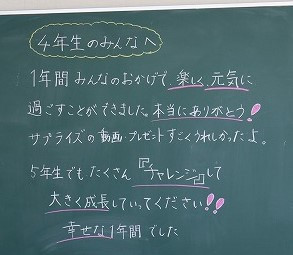 4年生のみんなへ
1年間 みんなのおかげで、楽しく、元気に
過ごすことができました。本当にありがとう!
サプライズの動画・プレゼントすごくうれしかったよ。
5年生でも たくさん『チャレンジ』して
大きく成長していってください!!
幸せな1年間でした